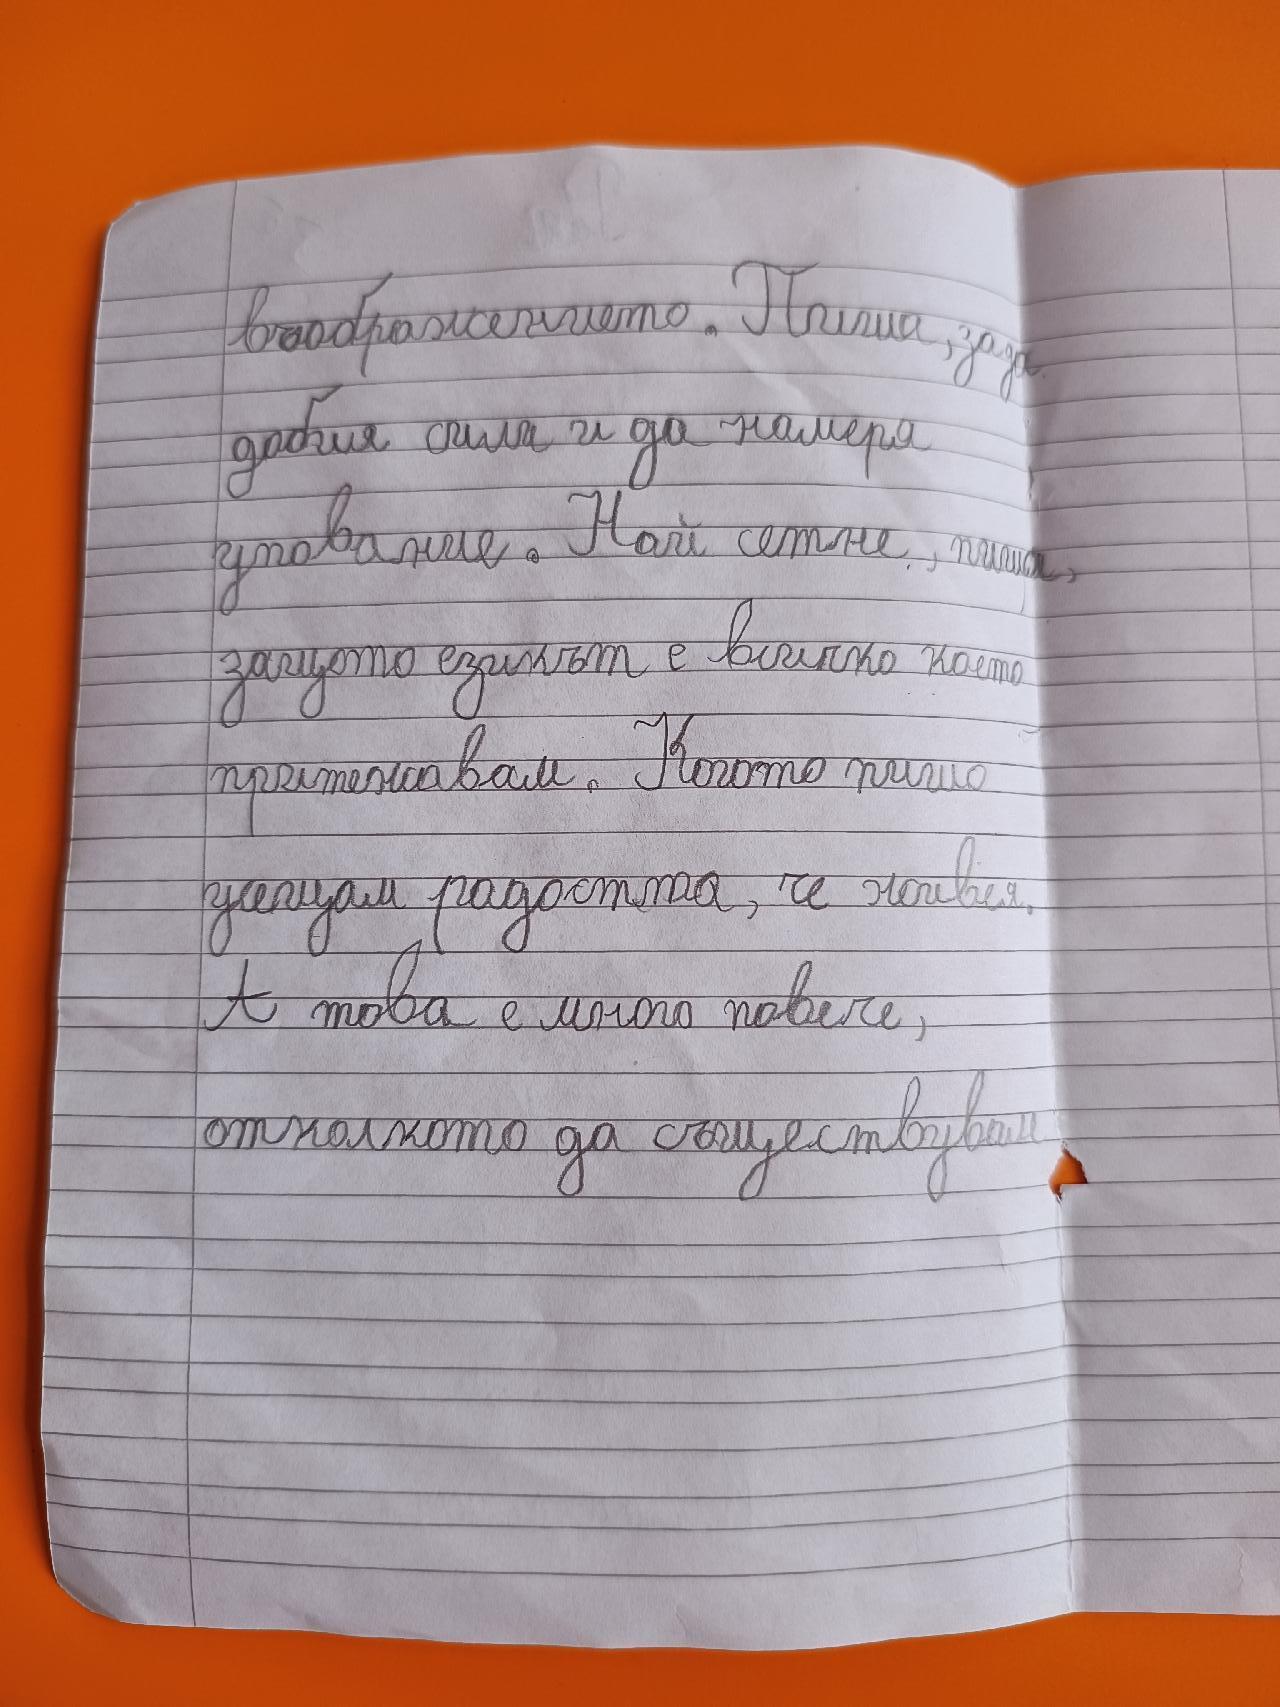 въображението. Пиша, за да
добия сила и да намеря
упование. Най сетне, пиша,
защото езикът е всичко което
притежавам. Когато пиша
усещам радостта, че живея.
А това е много повече,
отколкото да съществувам